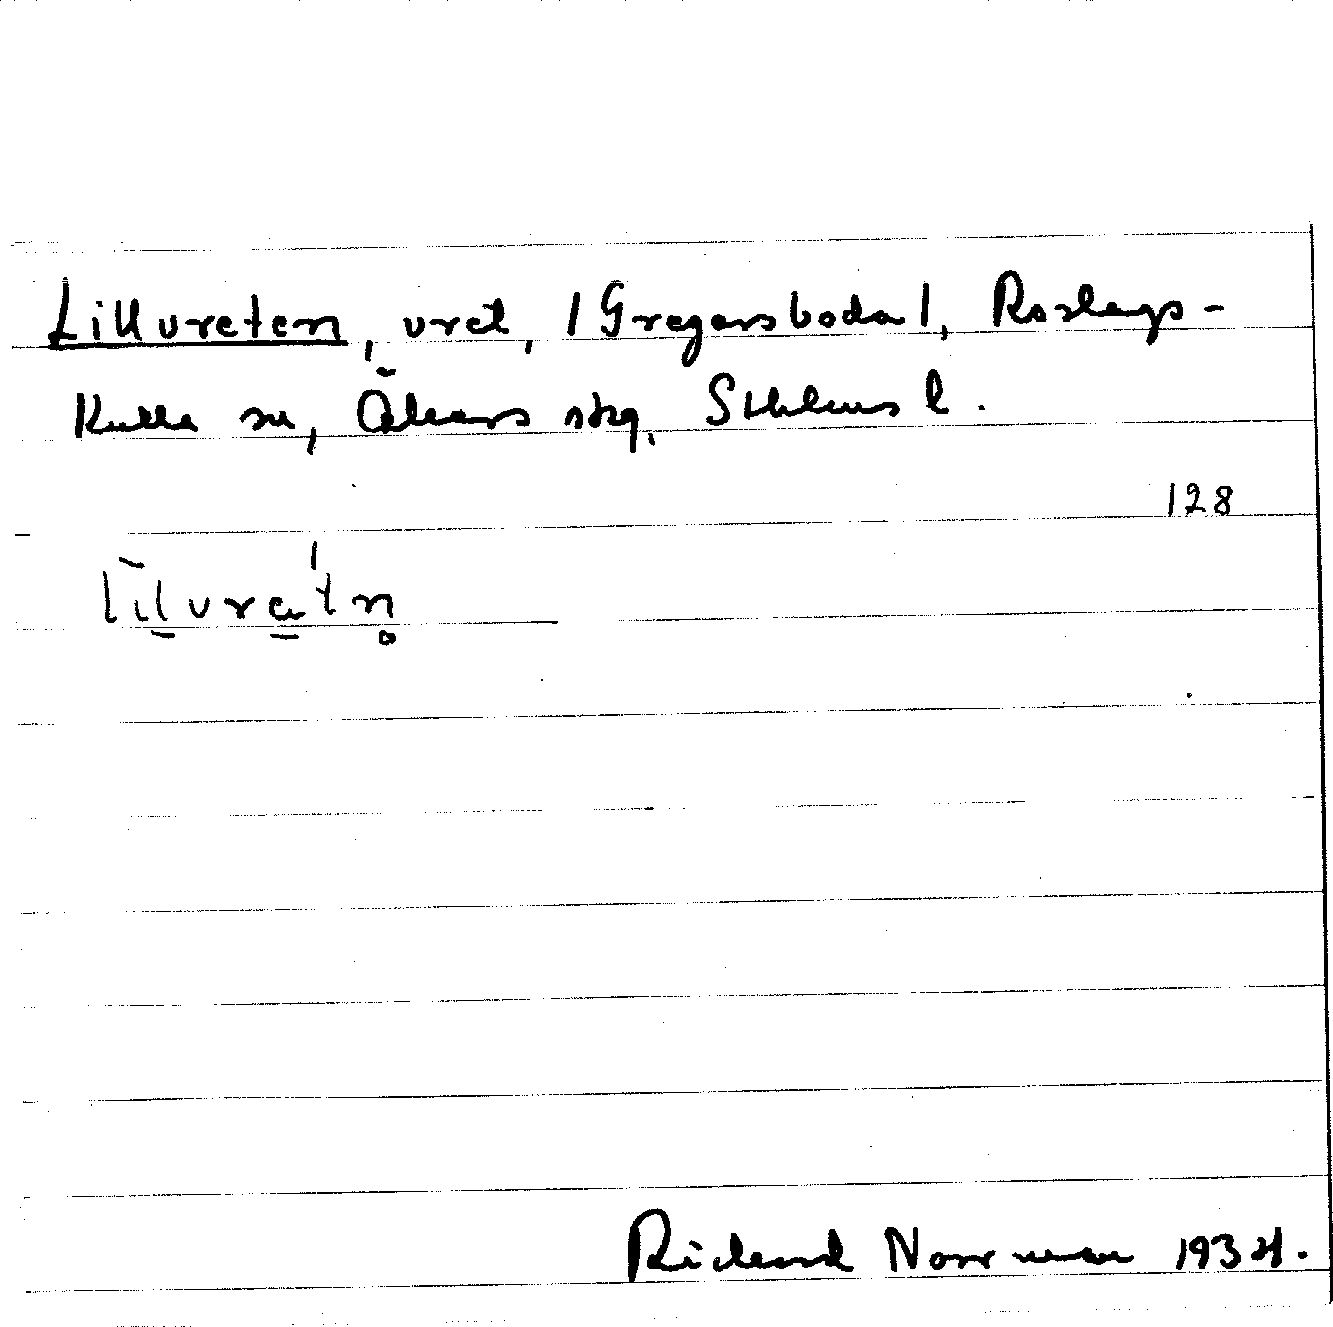 Lillvreten, vret, /Gregarsboda/, Roslags-
Kulla sn, Åkers skg, Sthlms l.
128
lilvra'tn
Rickard Norrman 1934.